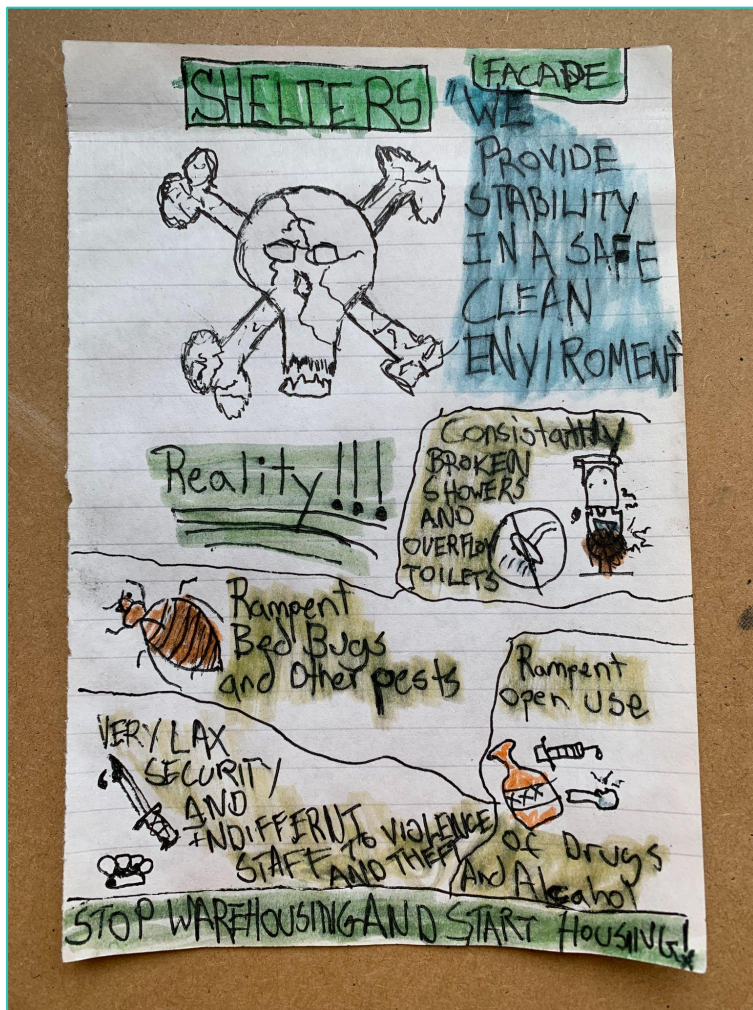 SHELTERS
FACADE
"WE
PROVIDE
STABILITY
IN A SAFE
CLEAN
ENVIROMENT"
Reality!!!
Consistantly
BROKEN
SHOWERS
AND
OVERFLOW
TOILETS
Rampent
Bed Bugs
and Other pests
Rampent
open use
XXX
of Drugs
And Alcahol
VERY LAX
SECURITY
AND
INDIFFERNT
STAFF TO VIOLENCE
AND THEFT
STOP WAREHOUSING AND START HOUSING!